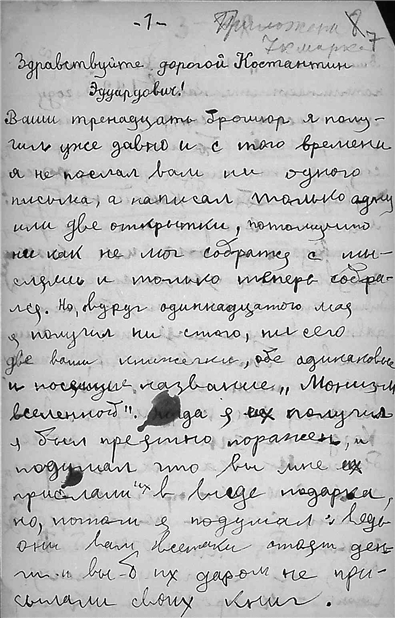 -1-
Приложена 8.7
7к марка
Здравствуйте дорогой Костантин
Эдуардович!
Ваши тренадцать брошюр я полу-
чил уже давно и с того времени
я не послал вам ни одного
письма, а написал только одну
или две открытки, потомучто
ни как не мог собратся с мы-
слями и только теперь собра-
лся. Но, вдруг одиннадцатого мая
я получил ни стого, ни сего
две ваши книжечки, обе одинаковые
и носящие название „Монизм
вселенной". Когда я их получил
я был приятно поражен, и
подумал что вы мне их
прислали их в виде подарка,
но, потом я подумал: ведь
они вам всетаки стоят ден-
ги и вы-б их даром не при-
сылали своих книг.